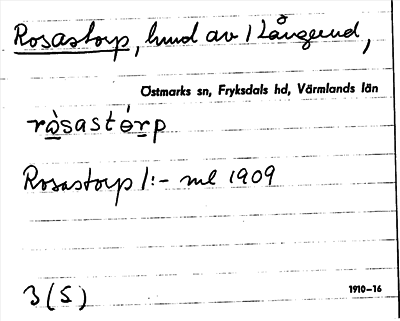 Rosastorp, hmd av 1 Långerud,
Östmarks sn, Fryksdals hd, Värmlands län
ròsastórp
Rosastorp /:- ml 1909
3 (S)
1910–16